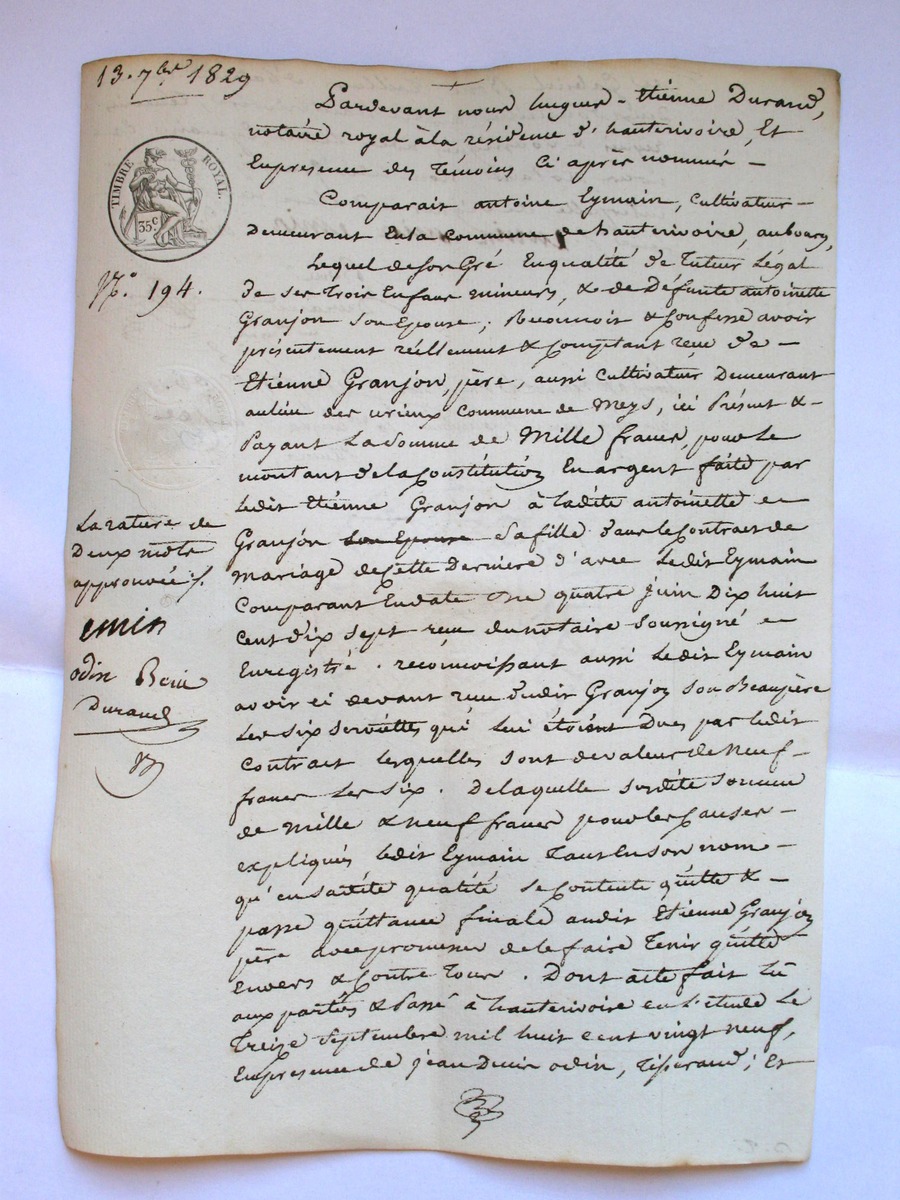 13. 7bre 1829
TIMBRE ROYAL.
35c
N.o 194.
Pardevant nous hugues - Etienne Durand,
notaire royal à la résidence d'hauterivoire, Et
En presence des Témoins Ci après nommés -
Comparait antoine Eymain, Cultivateur -
Demeurant En la Commune de hauterivoire, au bourg,
Lequel de son Gré En qualité de Tuteur Légal
de ses Trois Enfans mineurs, & de Défunte antoinette
Granjon son Epouse; Reconnoit & Confesse avoir
présentement réellement & Comptant reçu de -
Etienne Granjon, père, aussi Cultivateur Demeurant
au lieu des urieux Commune de Meys, ici Présent & -
Payant La Somme de Mille francs, pour Le
montant de la Constitution En argent faite par
Ledit Etienne Granjon à Ladite antoinette
Granjon son Epouse Sa fille dans le Contrat de
mariage de Cette Derniere d'avec Ledit Eymain
Comparant En date du quatre juin Dix huit
cent dix sept reçu du notaire soussigné et
Enregistré. reconnoissant aussi Ledit Eymain
avoir ci devant reçu dudit Granjon Son Beaupère
Les six serviettes qui Lui étoient Dues par Ledit
Contrait lesquelles sont de valeur de neuf
francs Les six. De laquelle susdite somme
de mille & neuf francs pour les Causes -
expliqués Ledit Eymain Tant En son nom -
qu'en sadite qualité se Contente quitte & -
passe quittance finale audit Etienne Granjon
père avec promesse de le faire Tenir quitte
Envers & Contre Tous. Dont acte fait Lu
aux parties & Passé à hauterivoire en L'étude Le
Treize Septembre mil huit cent vingt neuf,
En presence de jean Denis odin, Tisserand; Et
La rature de
Deux mots
approuvée ./.
odin
Durand